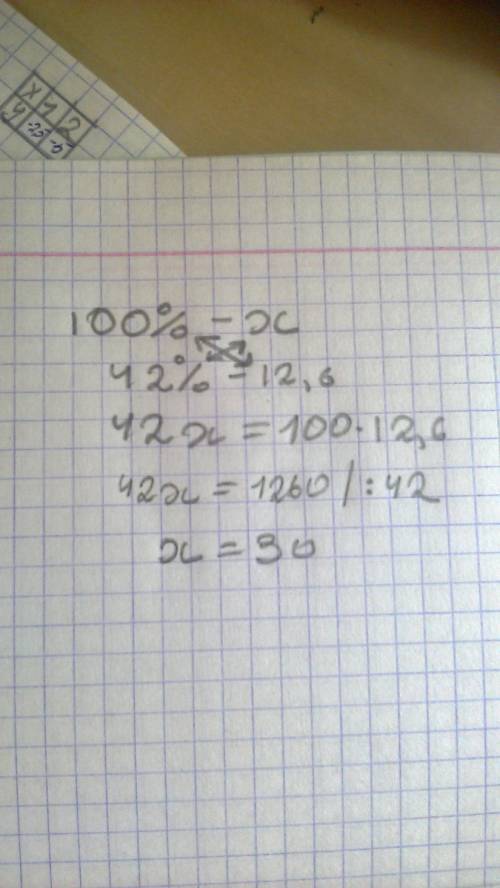 x 1 2
y
100% - x
42% - 12,6
42x = 100·12,6
42x = 1260 /:42
x = 30